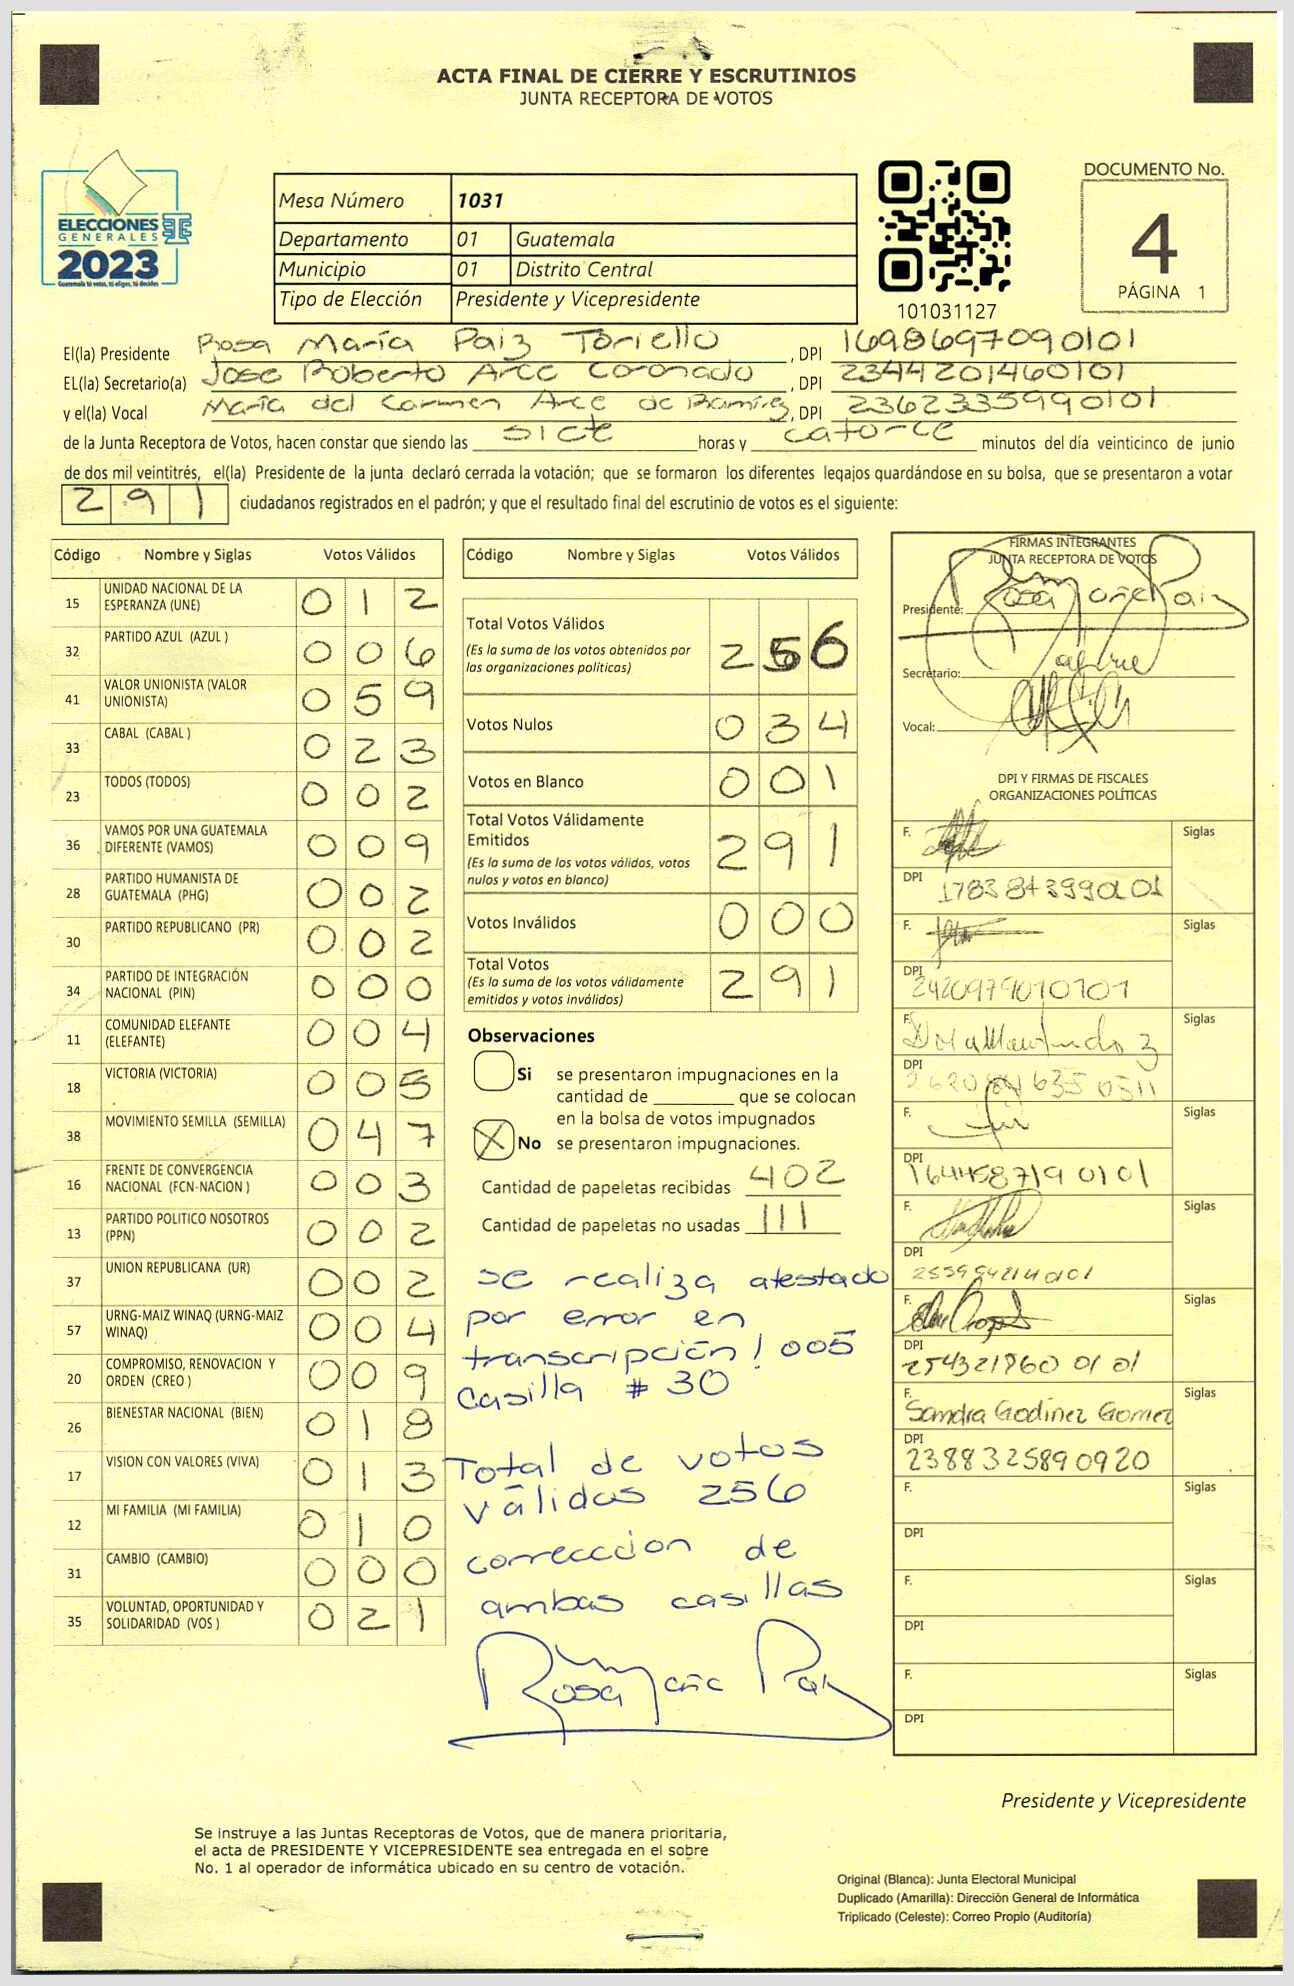 ACTA FINAL DE CIERRE Y ESCRUTINIOS
JUNTA RECEPTORA DE VOTOS
ELECCIONES
GENERALES
2023
Guatemala tú votas, tú eliges, tú decides
Mesa Número 1031
Departamento 01 Guatemala
Municipio 01 Distrito Central
Tipo de Elección Presidente y Vicepresidente
101031127
DOCUMENTO No.
4
PÁGINA 1
El(la) Presidente Rosa María Paiz Toriello, DPI 1698697090101
EL(la) Secretario(a) Jose Roberto Arce Coronado, DPI 2344201460101
y el(la) Vocal María del Carmen Arce de Ramírez, DPI 2362335990101
de la Junta Receptora de Votos, hacen constar que siendo las siete horas y catorce minutos del día veinticinco de junio
de dos mil veintitrés, el(la) Presidente de la junta declaró cerrada la votación; que se formaron los diferentes legajos guardándose en su bolsa, que se presentaron a votar
291 ciudadanos registrados en el padrón; y que el resultado final del escrutinio de votos es el siguiente:
Código Nombre y Siglas Votos Válidos
15 UNIDAD NACIONAL DE LA ESPERANZA (UNE) 012
32 PARTIDO AZUL (AZUL ) 006
41 VALOR UNIONISTA (VALOR UNIONISTA) 059
33 CABAL (CABAL ) 023
23 TODOS (TODOS) 002
36 VAMOS POR UNA GUATEMALA DIFERENTE (VAMOS) 009
28 PARTIDO HUMANISTA DE GUATEMALA (PHG) 002
30 PARTIDO REPUBLICANO (PR) 002
34 PARTIDO DE INTEGRACIÓN NACIONAL (PIN) 000
11 COMUNIDAD ELEFANTE (ELEFANTE) 004
18 VICTORIA (VICTORIA) 005
38 MOVIMIENTO SEMILLA (SEMILLA) 047
16 FRENTE DE CONVERGENCIA NACIONAL (FCN-NACION ) 003
13 PARTIDO POLITICO NOSOTROS (PPN) 002
37 UNION REPUBLICANA (UR) 002
57 URNG-MAIZ WINAQ (URNG-MAIZ WINAQ) 004
20 COMPROMISO, RENOVACION Y ORDEN (CREO ) 009
26 BIENESTAR NACIONAL (BIEN) 018
17 VISION CON VALORES (VIVA) 013
12 MI FAMILIA (MI FAMILIA) 010
31 CAMBIO (CAMBIO) 000
35 VOLUNTAD, OPORTUNIDAD Y SOLIDARIDAD (VOS ) 021
Código Nombre y Siglas Votos Válidos
Total Votos Válidos 256
(Es la suma de los votos obtenidos por
las organizaciones políticas)
Votos Nulos 034
Votos en Blanco 001
Total Votos Válidamente
Emitidos 291
(Es la suma de los votos válidos, votos
nulos y votos en blanco)
Votos Inválidos 000
Total Votos 291
(Es la suma de los votos válidamente
emitidos y votos inválidos)
Observaciones
Si se presentaron impugnaciones en la
cantidad de ________ que se colocan
en la bolsa de votos impugnados
X No se presentaron impugnaciones.
Cantidad de papeletas recibidas 402
Cantidad de papeletas no usadas 111
se realiza atestado
por error en
transcripción! 005
Casilla # 30
Total de votos
válidos 256
correccion de
ambas casillas
Rosa María Paiz
FIRMAS INTEGRANTES
JUNTA RECEPTORA DE VOTOS
Presidente: Rosa María Paiz
Secretario:
Vocal:
DPI Y FIRMAS DE FISCALES
ORGANIZACIONES POLÍTICAS
F. Siglas
DPI
F. Siglas
DPI 2420979010101
F. Siglas
DPI
F. Siglas
DPI 1644587190101
F. Siglas
DPI
F. Siglas
DPI 2543219600101
F. Sandra Godinez Gomez Siglas
DPI 2388325890920
F. Siglas
DPI
F. Siglas
DPI
F. Siglas
DPI
Presidente y Vicepresidente
Se instruye a las Juntas Receptoras de Votos, que de manera prioritaria,
el acta de PRESIDENTE Y VICEPRESIDENTE sea entregada en el sobre
No. 1 al operador de informática ubicado en su centro de votación.
Original (Blanca): Junta Electoral Municipal
Duplicado (Amarilla): Dirección General de Informática
Triplicado (Celeste): Correo Propio (Auditoría)